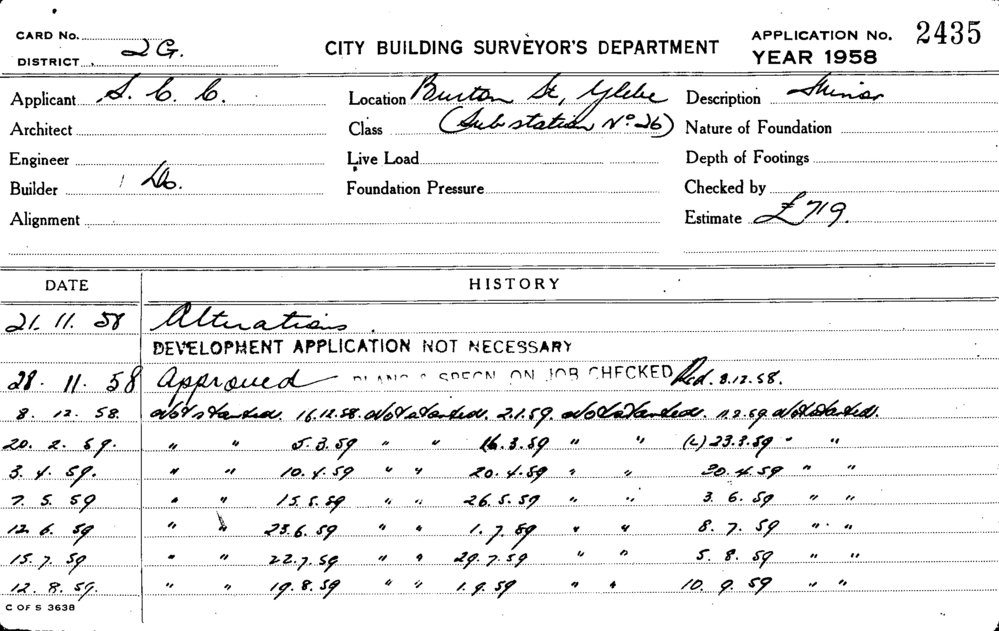 CARD No.
DISTRICT 2 G.
CITY BUILDING SURVEYOR'S DEPARTMENT
APPLICATION No. 2435
YEAR 1958
Applicant S. C. C. Location Burton St, Glebe Description Minor
Architect Class (Substation No 26) Nature of Foundation
Engineer Live Load Depth of Footings
Builder Do. Foundation Pressure Checked by
Alignment Estimate £719.
DATE HISTORY
21. 11. 58 Alterations
DEVELOPMENT APPLICATION NOT NECESSARY
28. 11. 58 Approved PLANS & SPECN ON JOB CHECKED 8.12.58.
8. 12. 58. Not started. 16.12.58. Not started. 2.1.59. Not started. 11.2.59 Not started.
20. 2. 59. " " 5.3.59 " " 16.3.59 " " (L) 23.3.59 " "
3. 4. 59. " " 10.4.59 " " 20.4.59 " " 30.4.59 " "
7. 5. 59 " " 15.5.59 " " 26.5.59 " " 3. 6. 59 " "
12. 6. 59 " " 23.6.59 " " 1. 7. 59 " " 8. 7. 59 " "
15. 7. 59 " " 22.7.59 " " 29.7.59 " " 5. 8. 59 " "
12. 8. 59. " " 19.8.59 " " 1.9.59 " " 10. 9. 59 " "
C OF S 3638